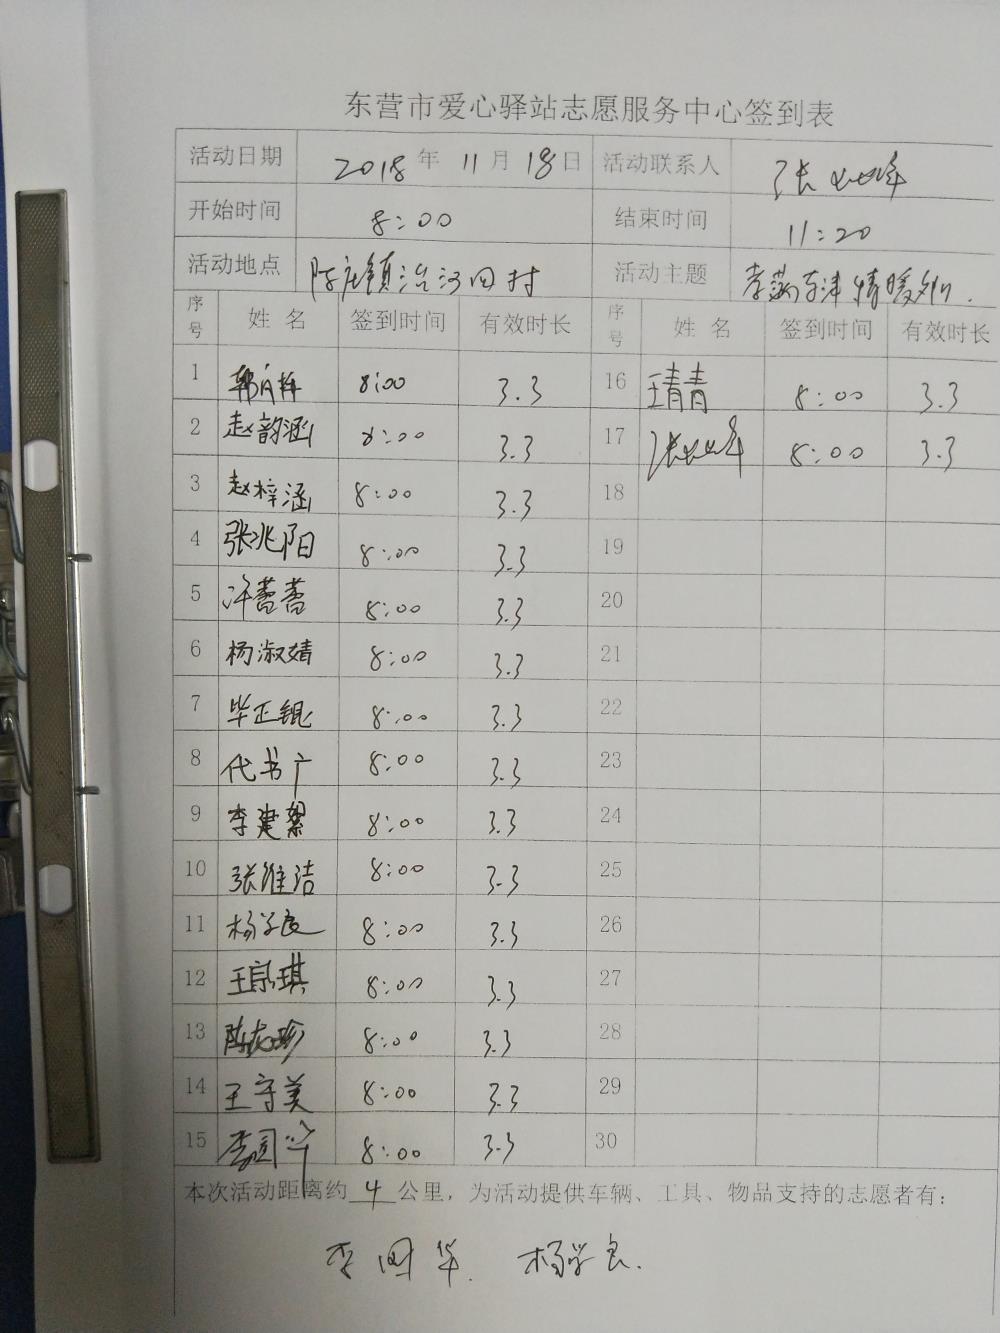 东营市爱心驿站志愿服务中心签到表
活动日期 2018 年 11 月 18 日 活动联系人 张
开始时间 8:00 结束时间 11:20
活动地点 陈庄镇治河田村 活动主题 情暖
序号 姓名 签到时间 有效时长 序号 姓名 签到时间 有效时长
1 8:00 3.3 16 王青青 8:00 3.3
2 赵韵涵 8:00 3.3 17 张 8:00 3.3
3 赵梓涵 8:00 3.3 18
4 张兆阳 8:00 3.3 19
5 许蕾蕾 8:00 3.3 20
6 杨淑婧 8:00 3.3 21
7 毕正锟 8:00 3.3 22
8 代书广 8:00 3.3 23
9 李建 8:00 3.3 24
10 张维洁 8:00 3.3 25
11 杨学良 8:00 3.3 26
12 王宗琪 8:00 3.3 27
13 陈龙珍 8:00 3.3 28
14 王守美 8:00 3.3 29
15 李国华 8:00 3.3 30
本次活动距离约 4 公里，为活动提供车辆、工具、物品支持的志愿者有：
李国华. 杨学良.